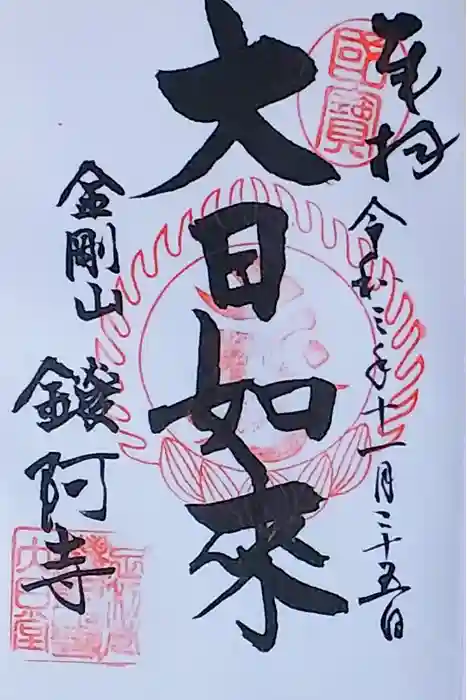 奉拝
國寶
令和三年十一月二十五日
大日如来
金剛山
鑁阿寺